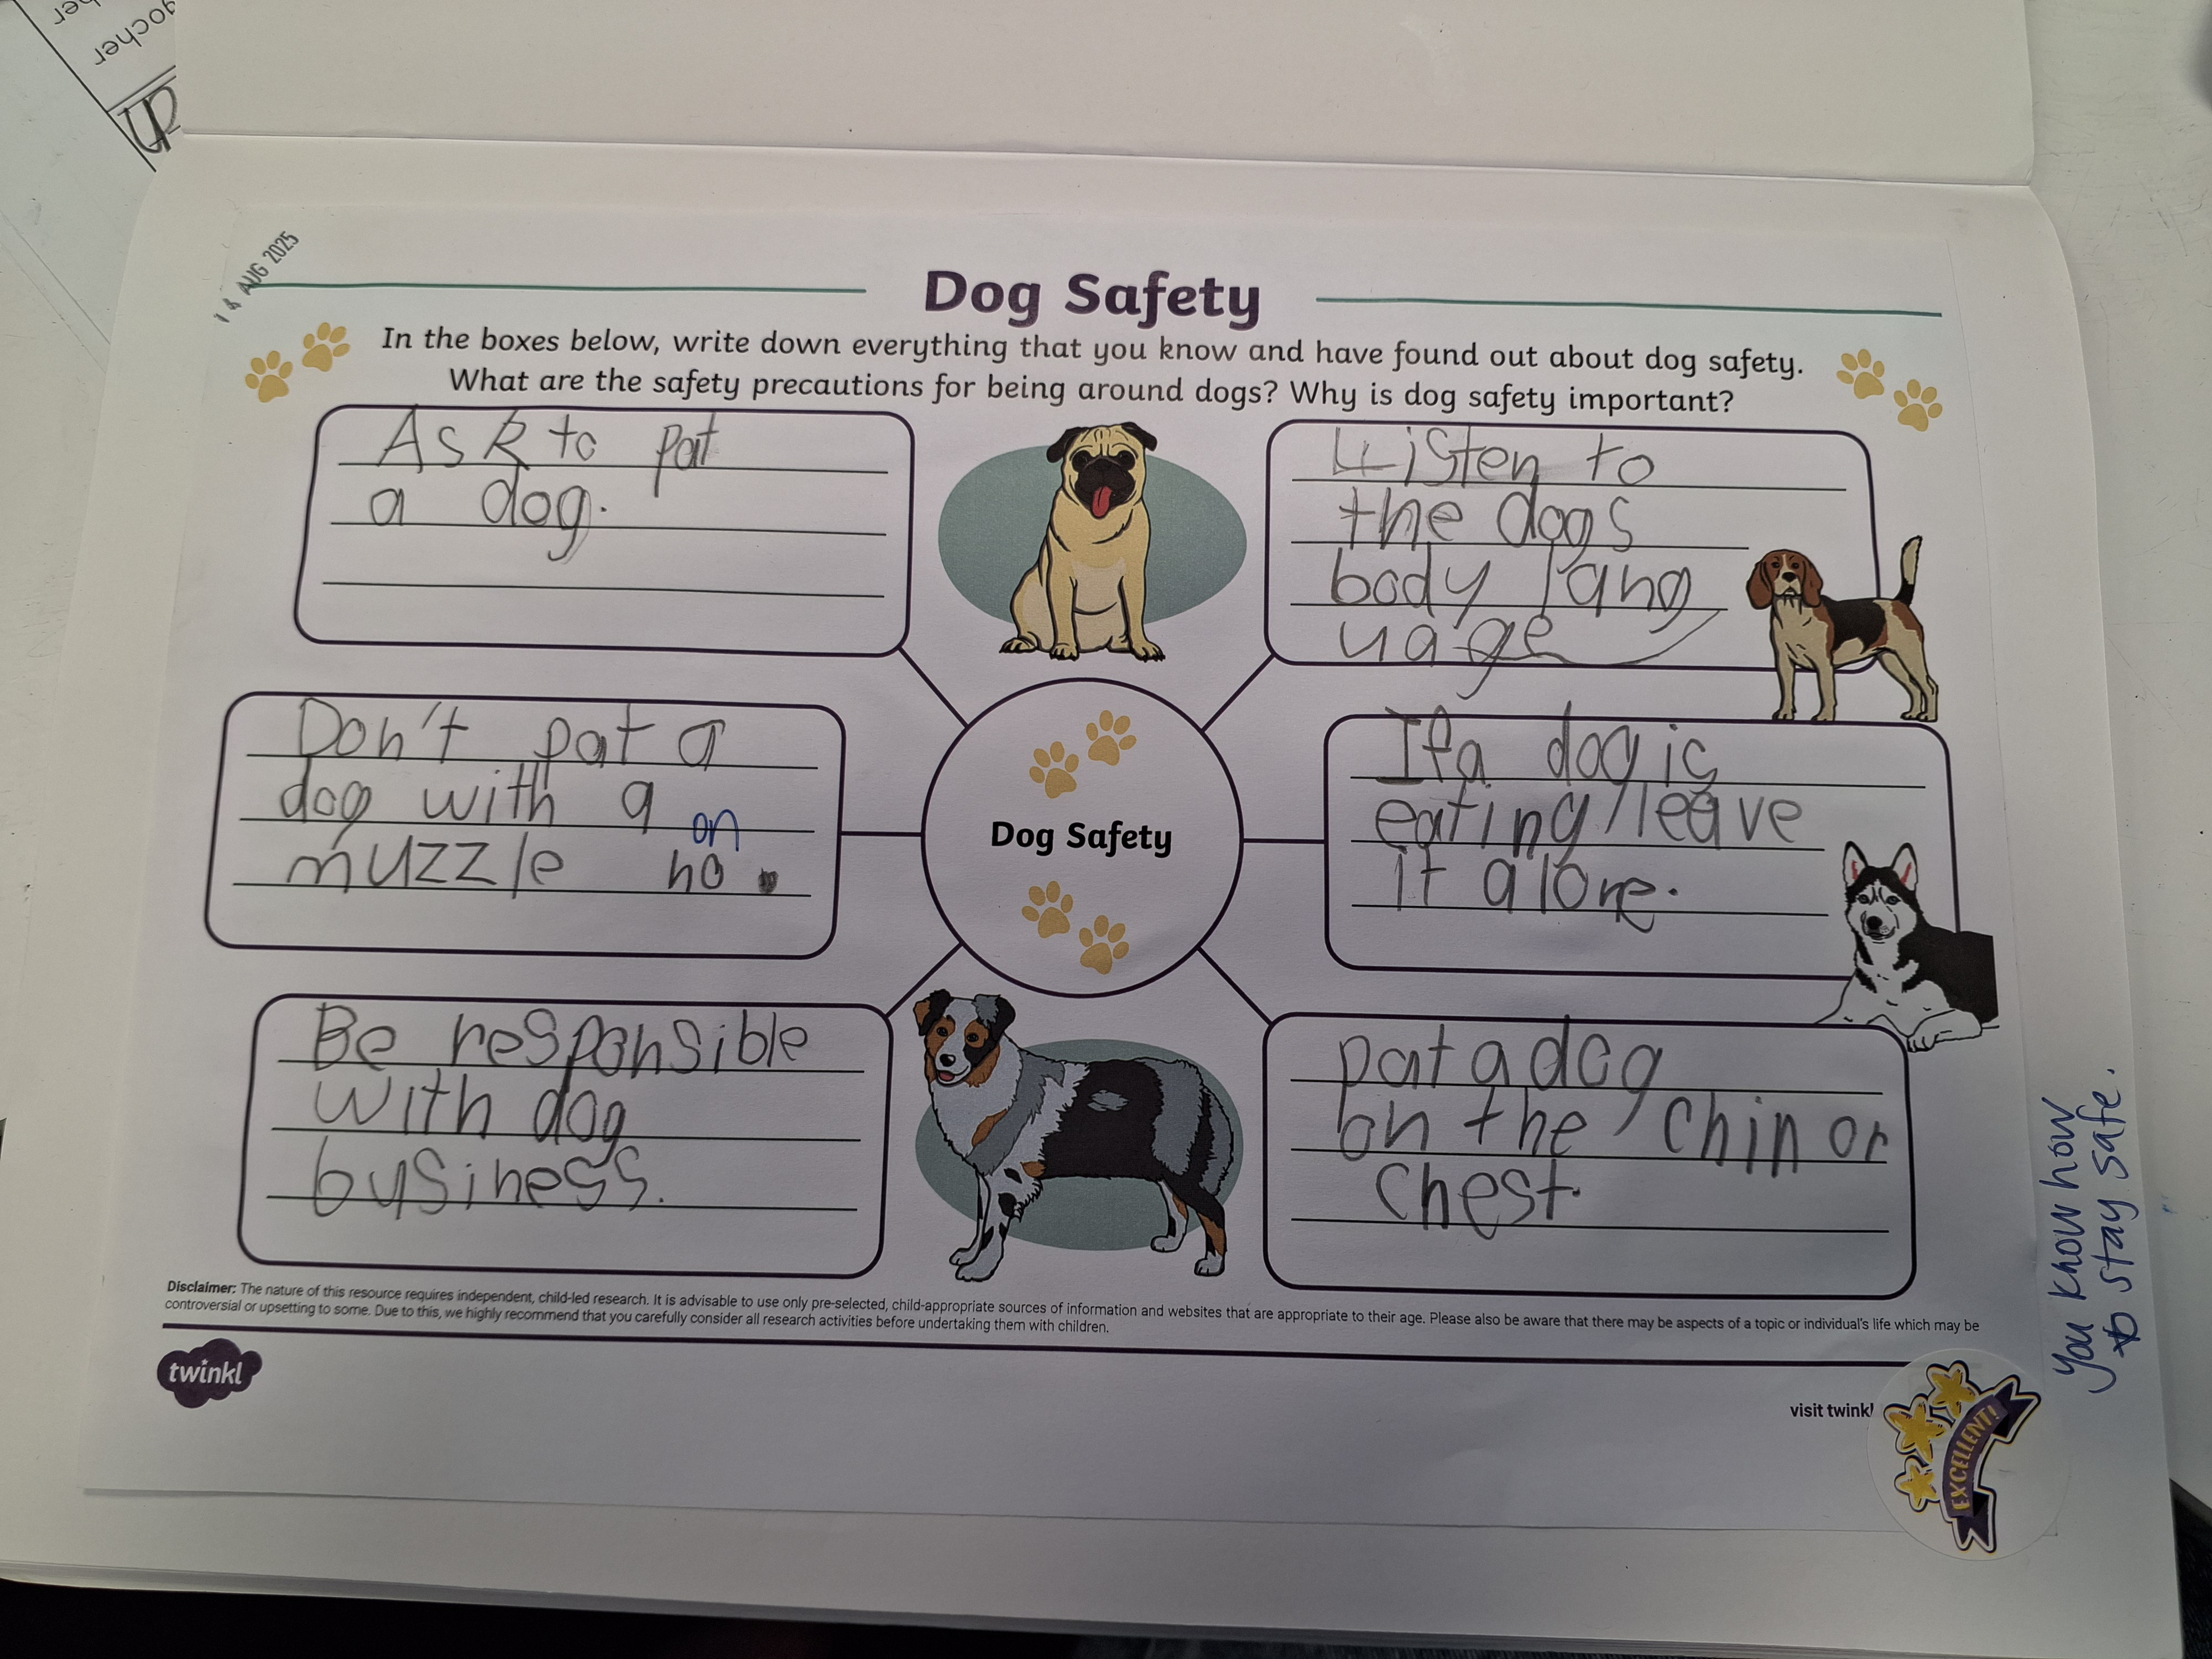 gocher
her
up
14 AUG 2025
Dog Safety
In the boxes below, write down everything that you know and have found out about dog safety.
What are the safety precautions for being around dogs? Why is dog safety important?
Ask to pat
a dog.
Listen to
the dogs
body lang
uage
Don't pat a
dog with a
on
muzzle no.
If a dog is
eating leave
it alone.
Dog Safety
Be responsible
with dog
business.
pat a dog
on the chin or
chest.
Disclaimer: The nature of this resource requires independent, child-led research. It is advisable to use only pre-selected, child-appropriate sources of information and websites that are appropriate to their age. Please also be aware that there may be aspects of a topic or individual's life which may be
controversial or upsetting to some. Due to this, we highly recommend that you carefully consider all research activities before undertaking them with children.
twinkl
visit twinkl
EXCELLENT!
You know how
to stay safe.